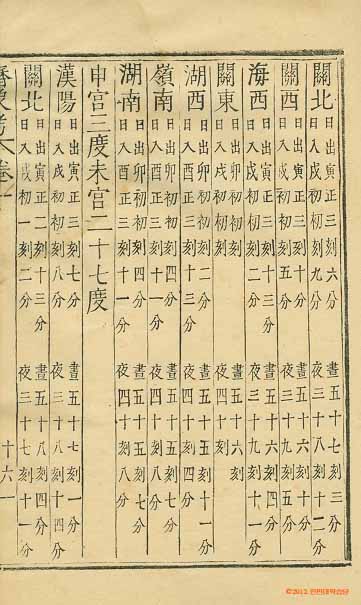 關北 日出寅正三刻六分 晝五十七刻三分
日入戌初初刻九分 夜三十八刻十二分
關西 日出寅正三刻十分 晝五十六刻十分
日入戌初初刻五分 夜三十九刻五分
海西 日出寅正三刻十三分 晝五十六刻四分
日入戌初初刻二分 夜三十九刻十一分
關東 日出卯初初刻 晝五十六刻
日入戌初初刻 夜四十刻
湖西 日出卯初初刻二分 晝五十五刻十一分
日入酉正三刻十三分 夜四十刻四分
嶺南 日出卯初初刻四分 晝五十五刻七分
日入酉正三刻十一分 夜四十刻八分
湖南 日出卯初初刻四分 晝五十五刻七分
日入酉正三刻十一分 夜四十刻八分
申宮三度未宮二十七度
漢陽 日出寅正三刻七分 晝五十七刻一分
日入戌初初刻八分 夜三十八刻十四分
關北 日出寅正二刻十三分 晝五十八刻四分
日入戌初一刻二分 夜三十七刻十一分
卷一 十六
©2012 인민대학습당